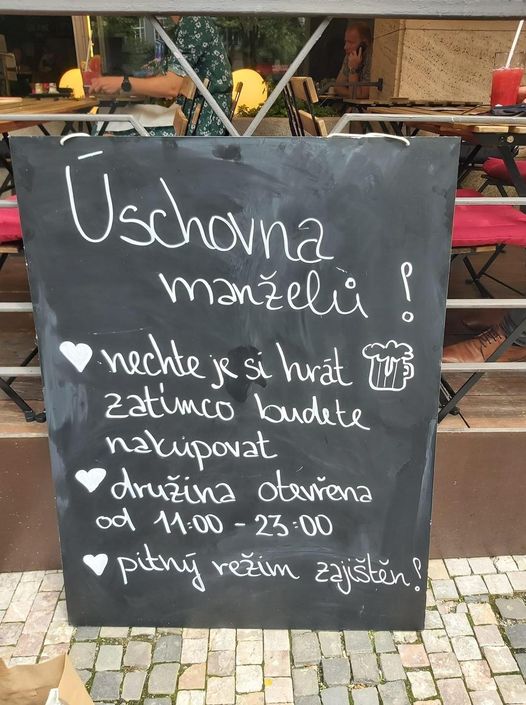 Úschovna
manželů !
nechte je si hrát
zatímco budete
nakupovat
družina otevřena
od 11:00 - 23:00
pitný režim zajištěn!